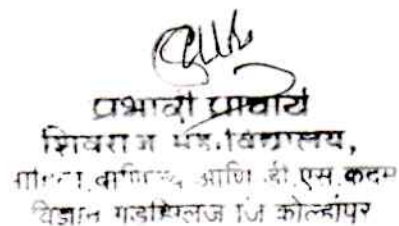 प्रभारी प्राचार्य
शिवराज महाविद्यालय,
वाणिज्य आणि डी.एस.कदम
विज्ञान गडहिंग्लज जि कोल्हापूर